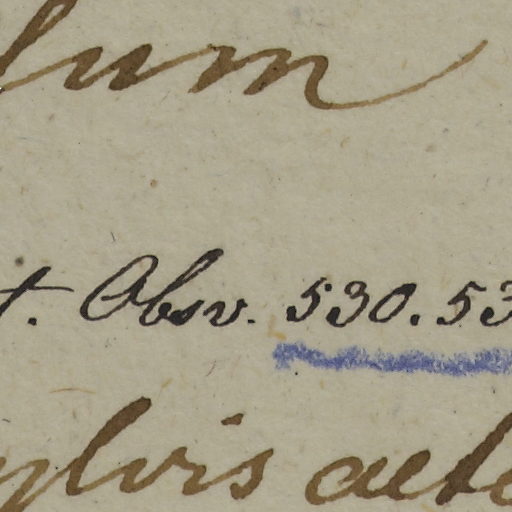 lum
t. Obsv. 530. 53
ylvis aete